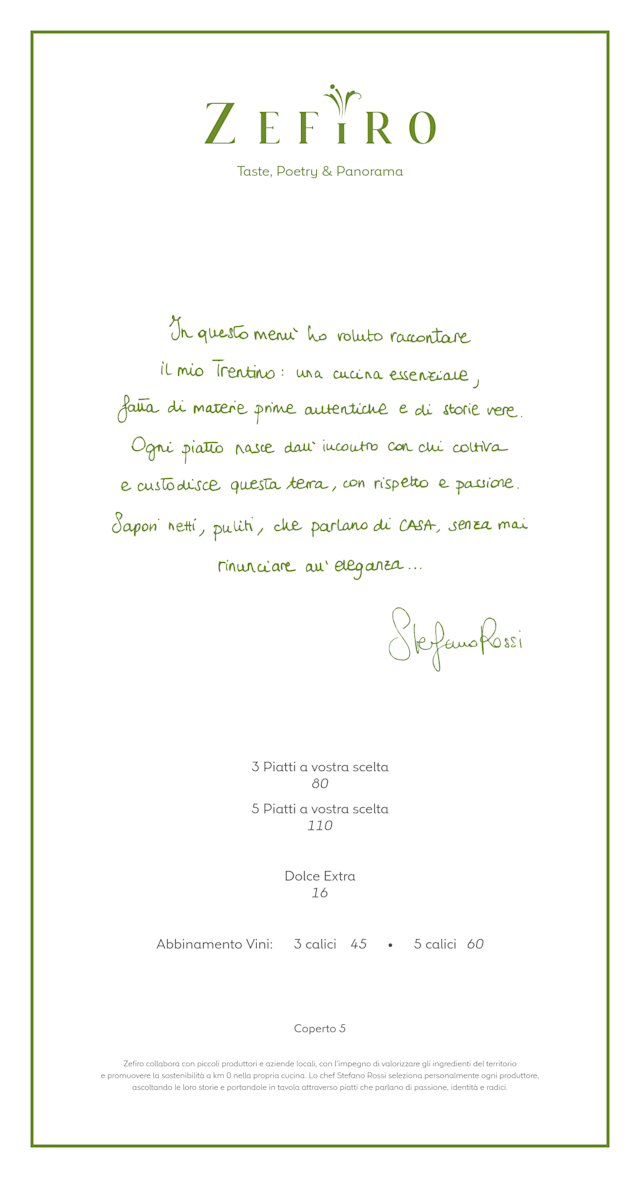 ZEFIRO
Taste, Poetry & Panorama
In questo menu' ho voluto raccontare
il mio Trentino: una cucina essenziale,
fatta di materie prime autentiche e di storie vere.
Ogni piatto nasce dall'incontro con chi coltiva
e custodisce questa terra, con rispetto e passione.
Sapori netti, puliti, che parlano di CASA, senza mai
rinunciare all'eleganza...
Stefano Rossi
3 Piatti a vostra scelta
80
5 Piatti a vostra scelta
110
Dolce Extra
16
Abbinamento Vini: 3 calici 45 • 5 calici 60
Coperto 5
Zefiro collabora con piccoli produttori e aziende locali, con l'impegno di valorizzare gli ingredienti del territorio
e promuovere la sostenibilità a km 0 nella propria cucina. Lo chef Stefano Rossi seleziona personalmente ogni produttore,
ascoltando le loro storie e portandole in tavola attraverso piatti che parlano di passione, identità e radici.